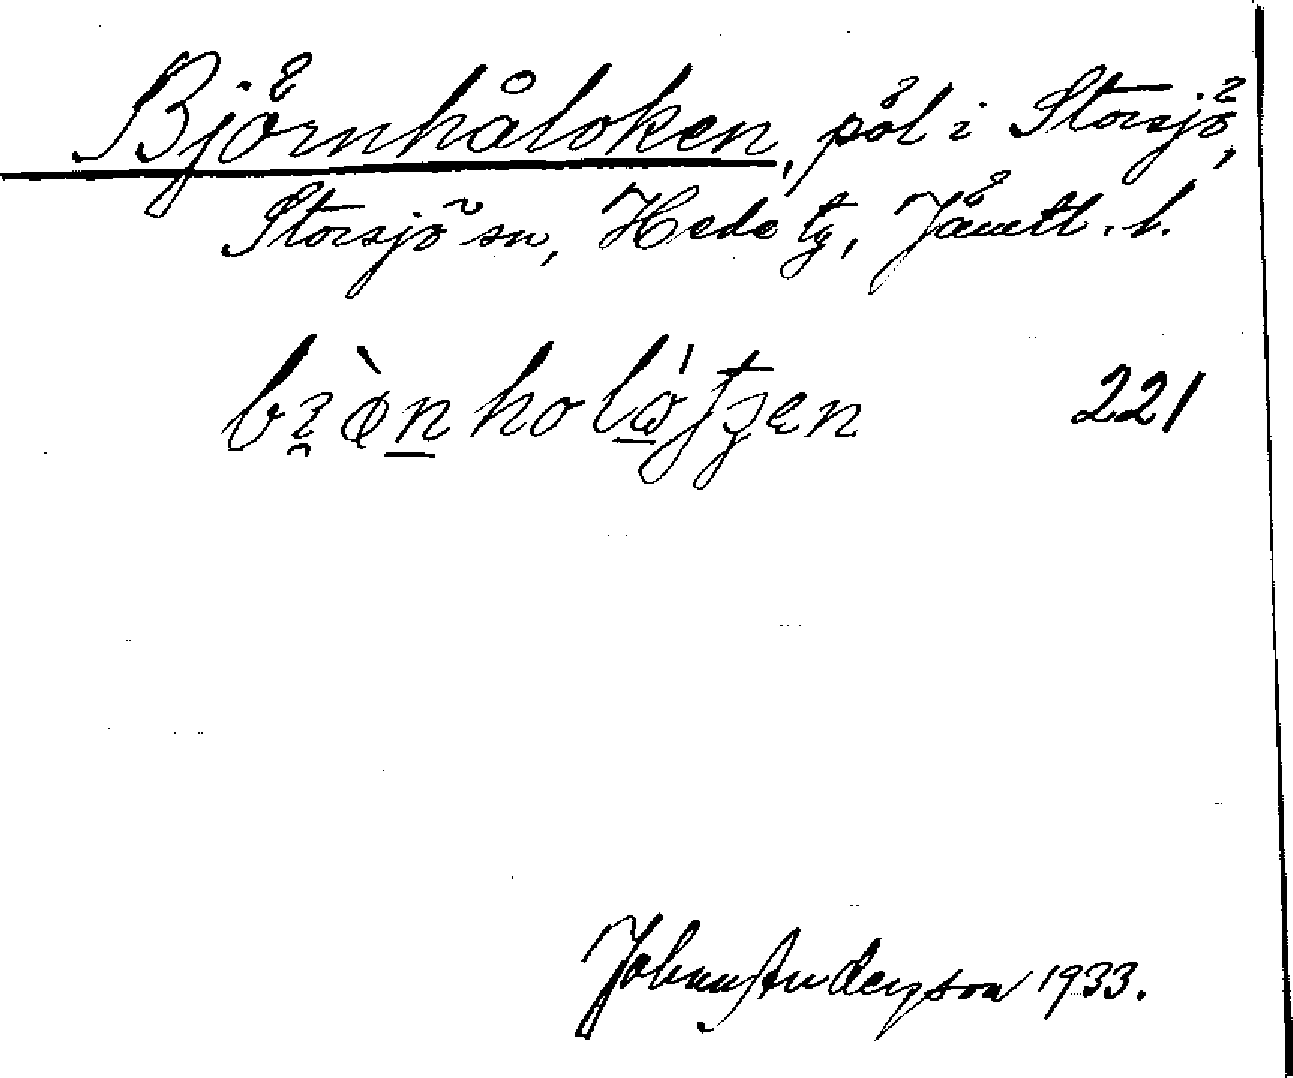 Björnhåloken, pöl i Storsjö,
Storsjö sn, Hede tg, Jämtl. l.
221
John Anderson 1933.